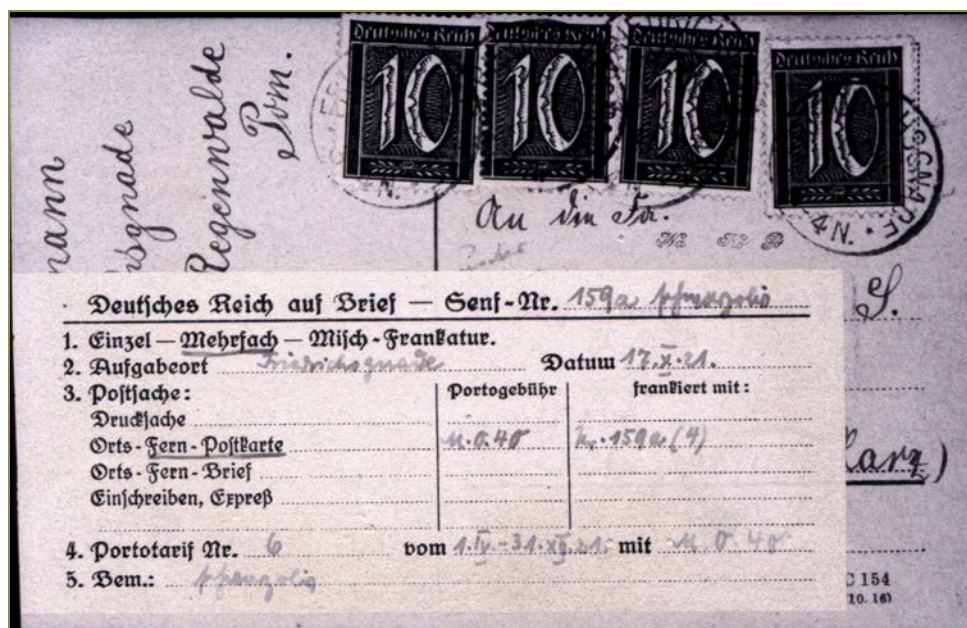 Deutsches Reich
Deutsches Reich
Deutsches Reich
Deutsches Reich
10
10
10
10
mann
Regenwalde
Pom.
An die Fa.
S.
Harz)
Deutsches Reich auf Brief — Senf-Nr. 159a
1. Einzel — Mehrfach — Misch-Frankatur.
2. Aufgabeort Friedrichsgnade Datum 17.X.21.
3. Postsache: Portogebühr frankiert mit:
Drucksache
Orts-Fern-Postkarte M. 0.40 Nr. 159a (4)
Orts-Fern-Brief
Einschreiben, Expreß
4. Portotarif Nr. 6 vom 1.IV.-31.XII.21. mit M. 0.40
5. Bem.:
C 154
(10. 16)